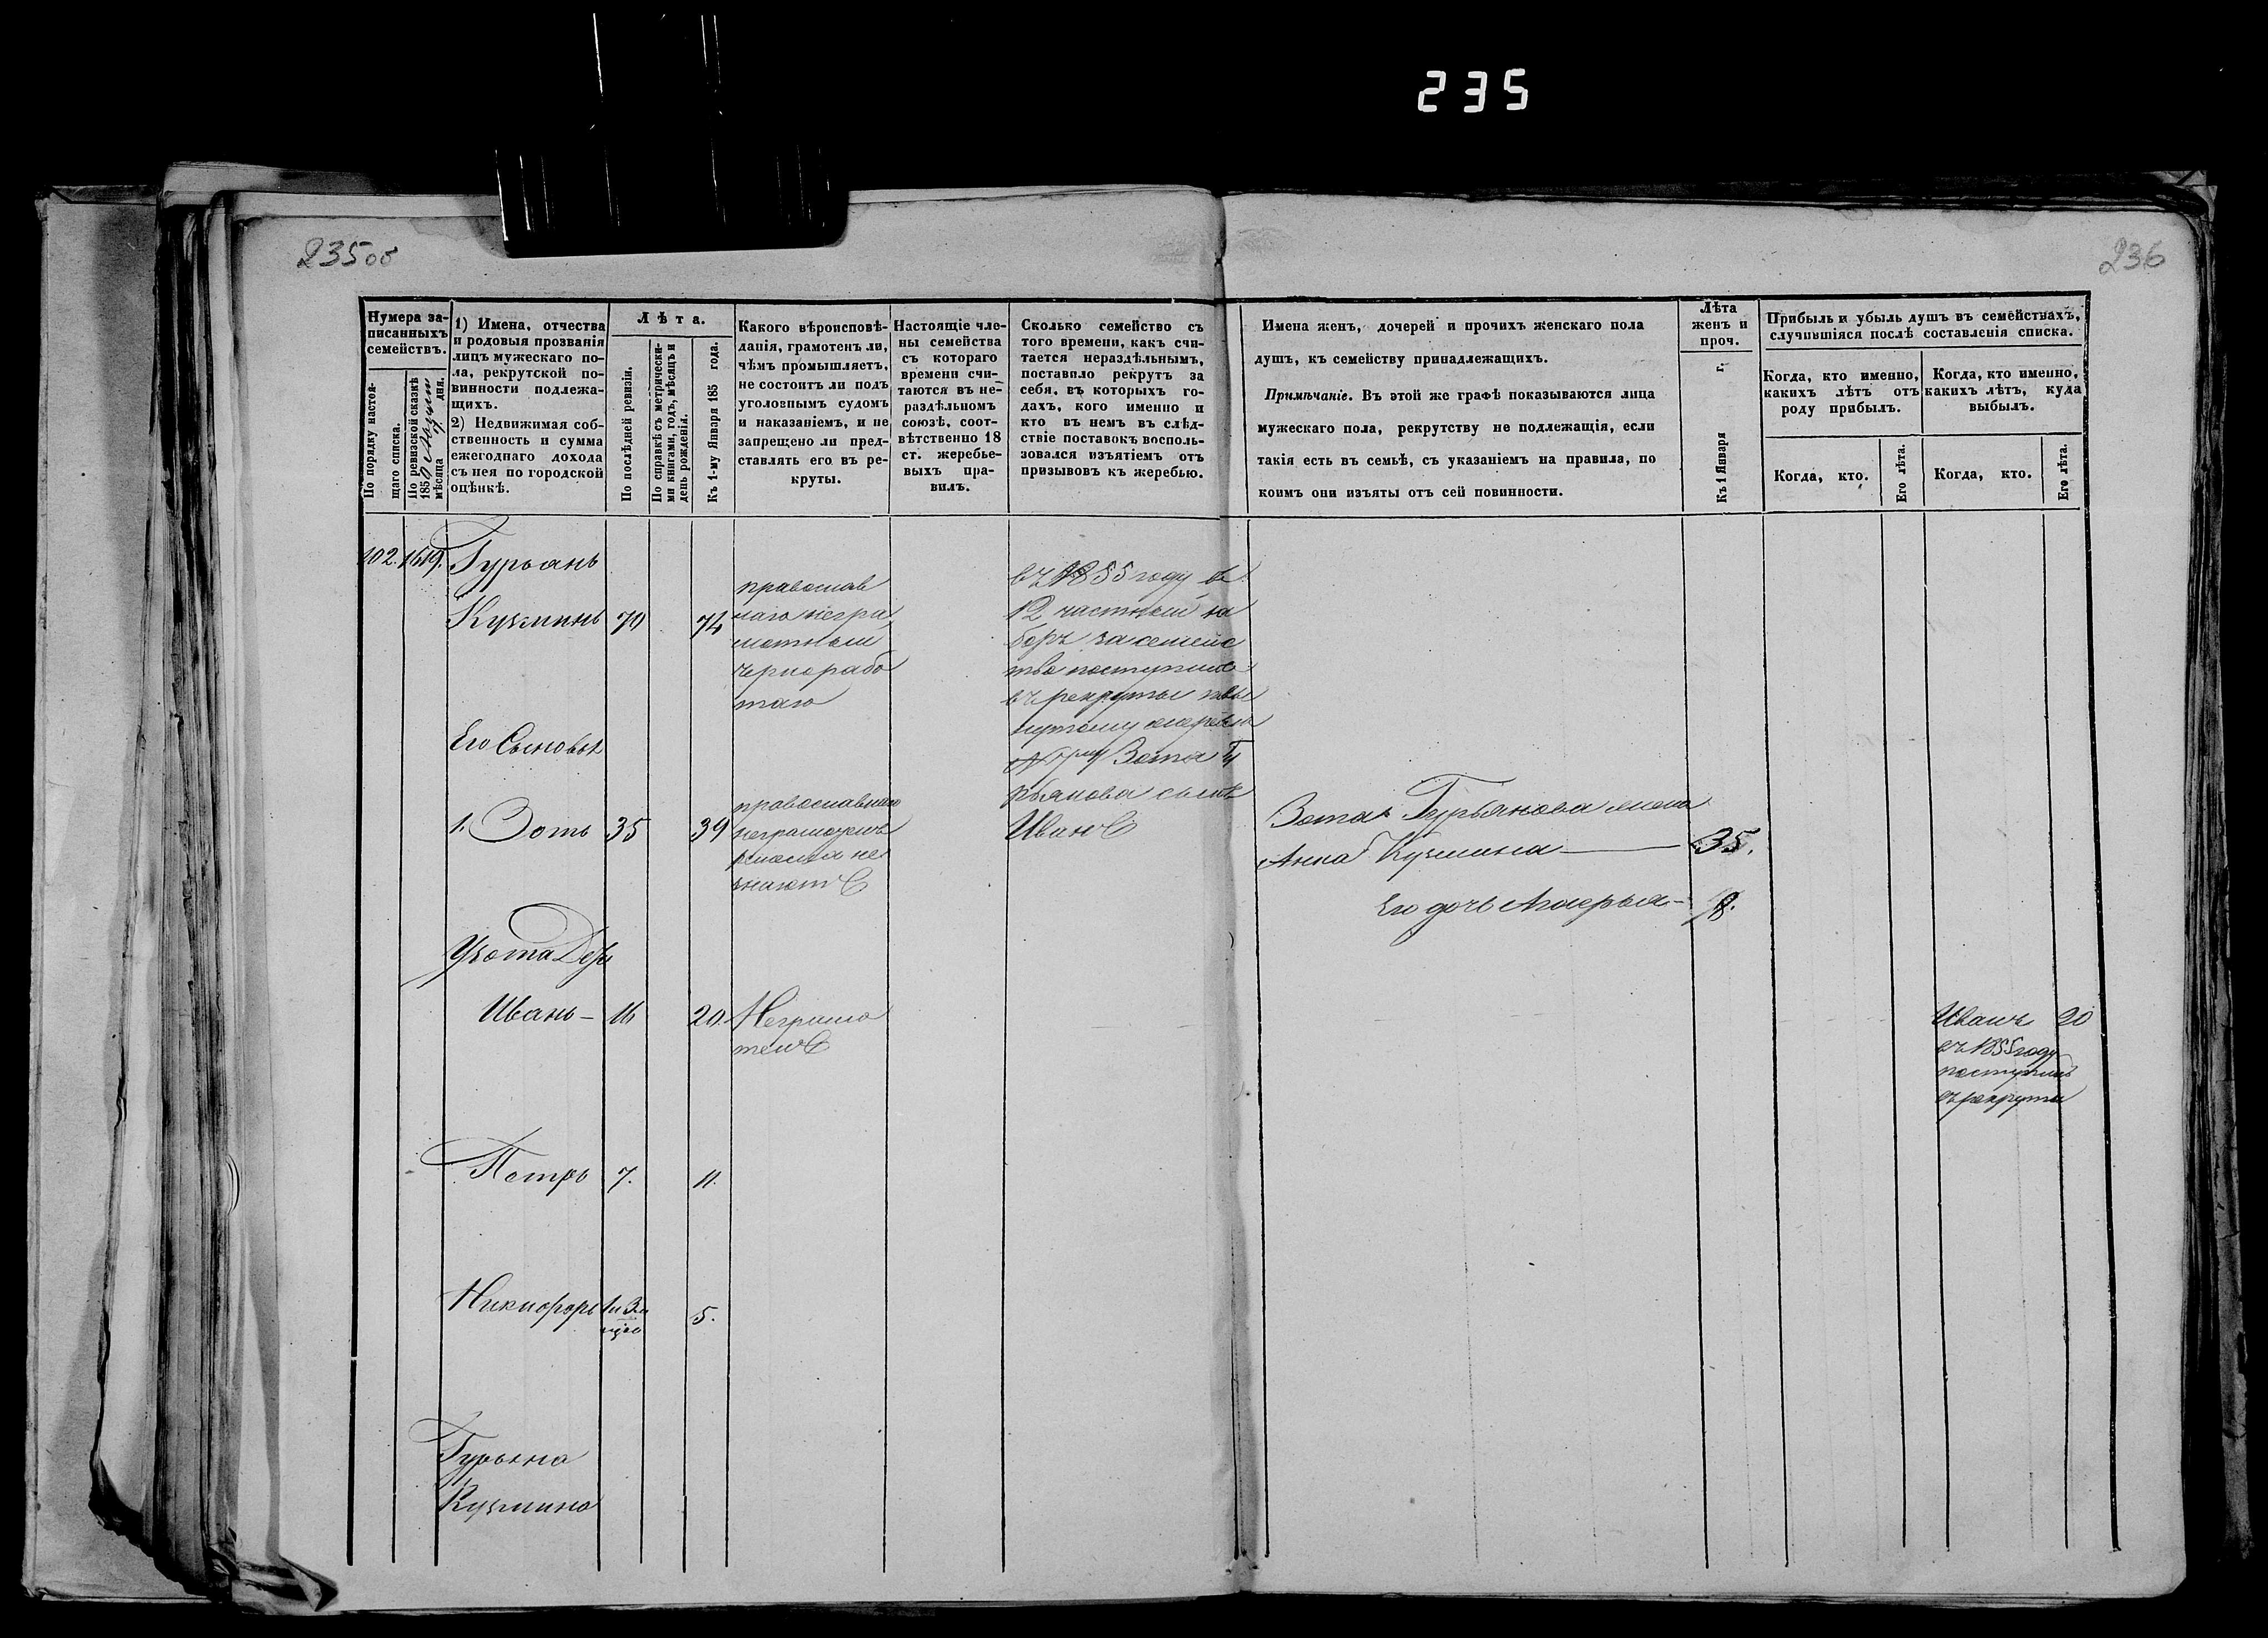 235
235об
236
Нумера за-
писанныхъ
семействъ.
По порядку настоя-
щаго списка.
По ревизской сказкѣ
185 мѣсяца дня.
1) Имена, отчества
и родовыя прозванія
лицъ мужескаго по-
ла, рекрутской по-
винности подлежа-
щихъ.
2) Недвижимая соб-
ственность и сумма
ежегоднаго дохода
съ нея по городской
оцѣнкѣ.
Лѣта.
По послѣдней ревизіи.
По справкѣ съ метрически-
ми книгами, годъ, мѣсяцъ и
день рожденія.
Къ 1-му Января 185 года.
Какого вѣроисповѣ-
данія, грамотенъ ли,
чѣмъ промышляетъ,
не состоитъ ли подъ
уголовнымъ судомъ
и наказаніемъ, и не
запрещено ли пред-
ставлять его въ ре-
круты.
Настоящіе чле-
ны семейства
съ котораго
времени счи-
таются въ не-
раздѣльномъ
союзѣ, соот-
вѣтственно 18
ст. жеребье-
выхъ пра-
вилъ.
Сколько семейство съ
того времени, какъ счи-
тается нераздѣльнымъ,
поставило рекрутъ за
себя, въ которыхъ го-
дахъ, кого именно и
кто въ немъ въ слѣд-
ствіе поставокъ восполь-
зовался изъятіемъ отъ
призывовъ къ жеребью.
Имена женъ, дочерей и прочихъ женскаго пола
душъ, къ семейству принадлежащихъ.
Примѣчаніе. Въ этой же графѣ показываются лица
мужескаго пола, рекрутству не подлежащія, если
такія есть въ семьѣ, съ указаніемъ на правила, по
коимъ они изъяты отъ сей повинности.
Лѣта
женъ и
проч.
Къ 1 Января г.
Прибыль и убыль душъ въ семействахъ,
случившіяся послѣ составленія списка.
Когда, кто именно,
какихъ лѣтъ отъ
роду прибылъ.
Когда, кто именно,
какихъ лѣтъ, куда
выбылъ.
Когда, кто.
Его лѣта.
Когда, кто.
Его лѣта.
102. 1619. Гурьянъ
Кузминъ 70 74
православ
наго негра
мотный
чернорабо
таю
въ 1855 году в
12 частный на
боръ за семейс
тво поступилъ
въ рекруты
Зота Гу
рьянова сынъ
Иванъ
Его Сыновья
1. Зотъ 35 39
православнаго
неграмотенъ
ремесла не
знаетъ
Зота Гурьянова жена
Анна Кузмина 35.
Его дочь
У Зота Дети
Иванъ 16 20. Неграмо
тенъ
Иванъ 20
въ 1855 году
поступилъ
въ рекруты
Петръ 7. 11.
Никифоръ 5.
Гурьяна
Кузмина